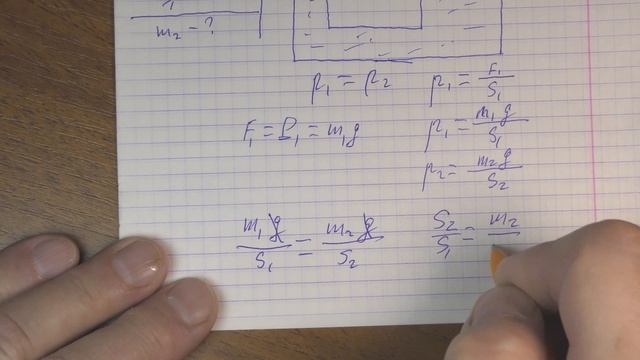 m₂ - ?
p₁ = p₂
p₁ = F₁/S₁
F₁ = P₁ = m₁g
p₁ = m₁g/S₁
p₂ = m₂g/S₂
m₁g/S₁ = m₂g/S₂
S₂/S₁ = m₂/